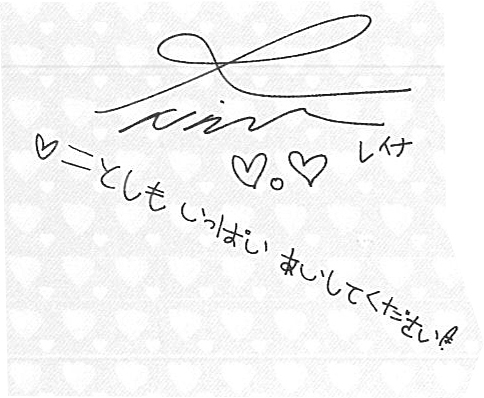 レイナ
♡ことしも いっぱい あいしてください!!